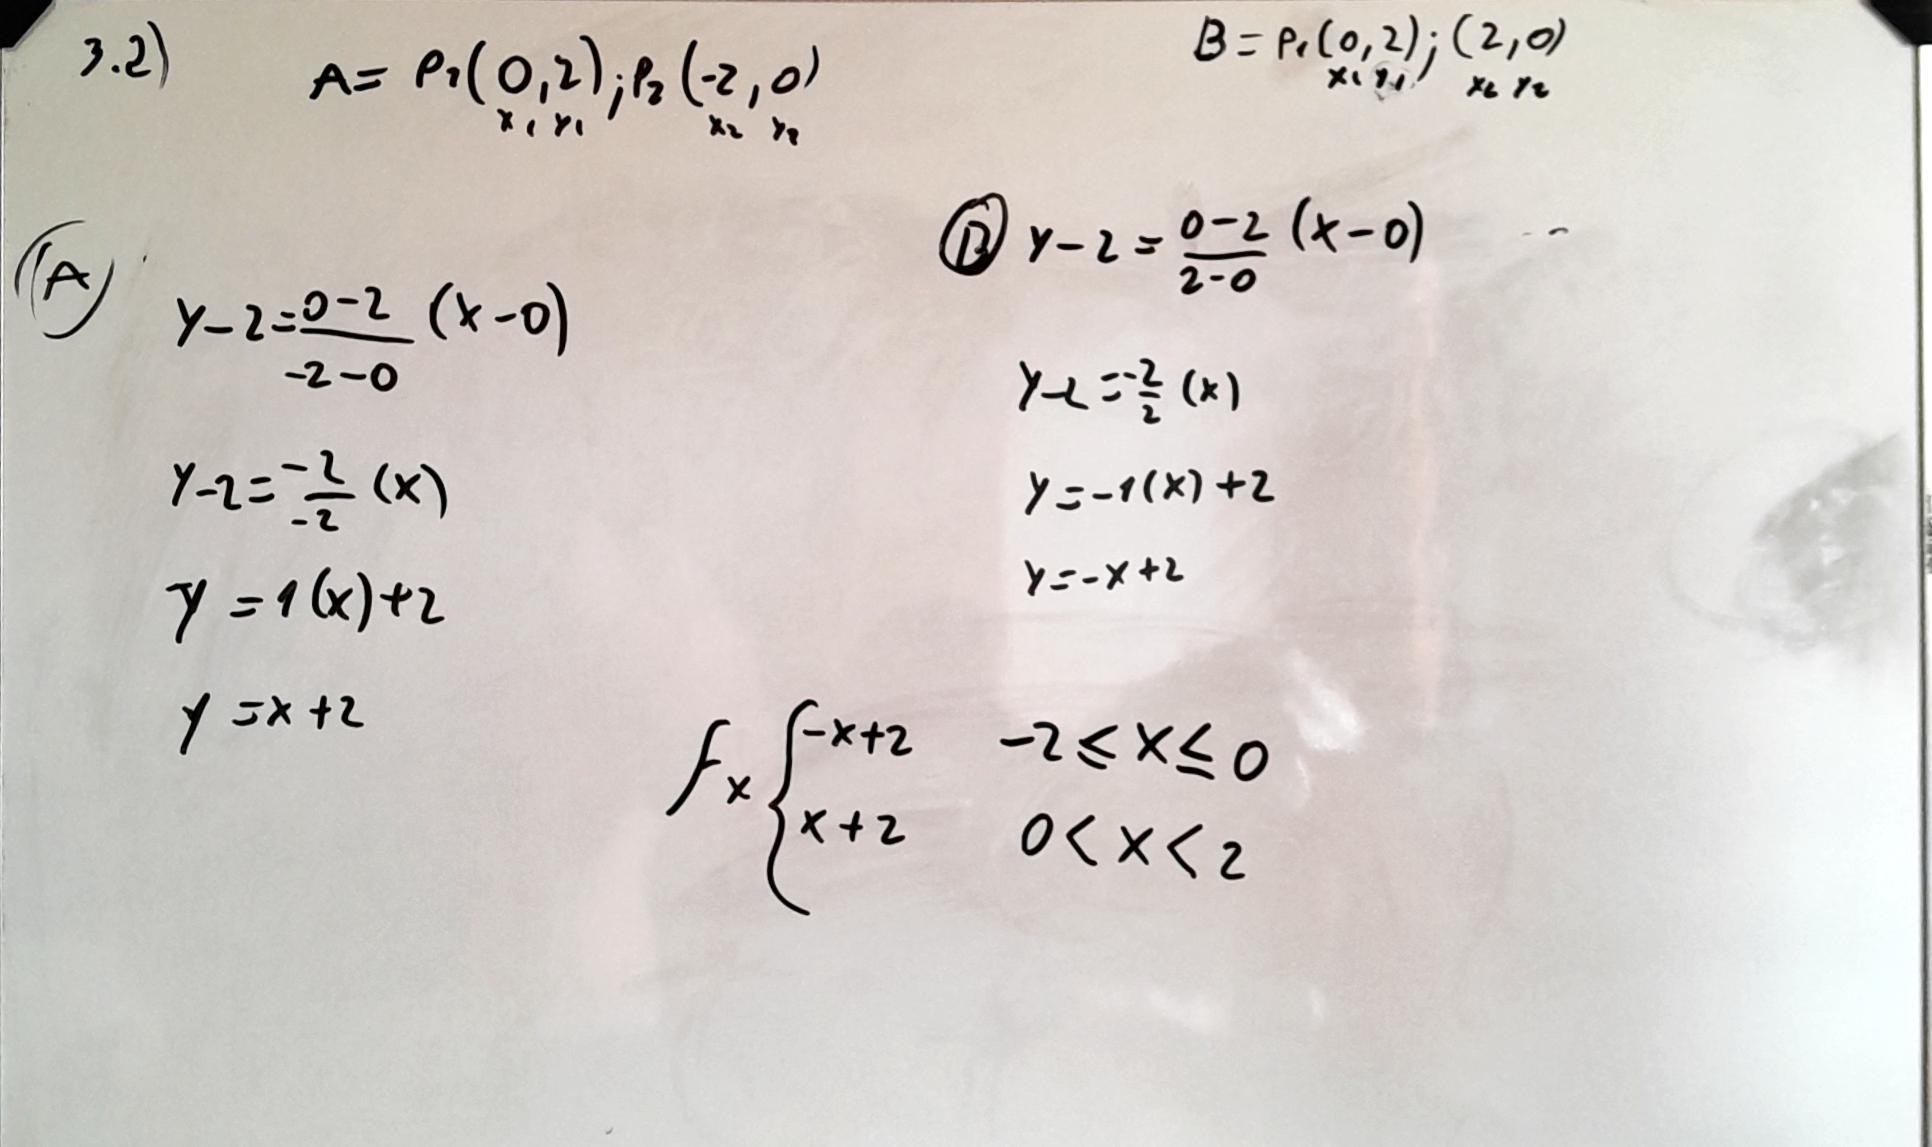 3.2)
A= P1(0,2);P2(-2,0)
x1 y1 x2 y2
B=P1(0,2);(2,0)
x1 y1 x2 y2
A
y-2=0-2/-2-0 (x-0)
y-2=-2/-2 (x)
y=1(x)+2
y=x+2
B y-2=0-2/2-0 (x-0)
y-2=-2/2 (x)
y=-1(x)+2
y=-x+2
fx { -x+2 -2≤x≤0
x+2 0<x<2